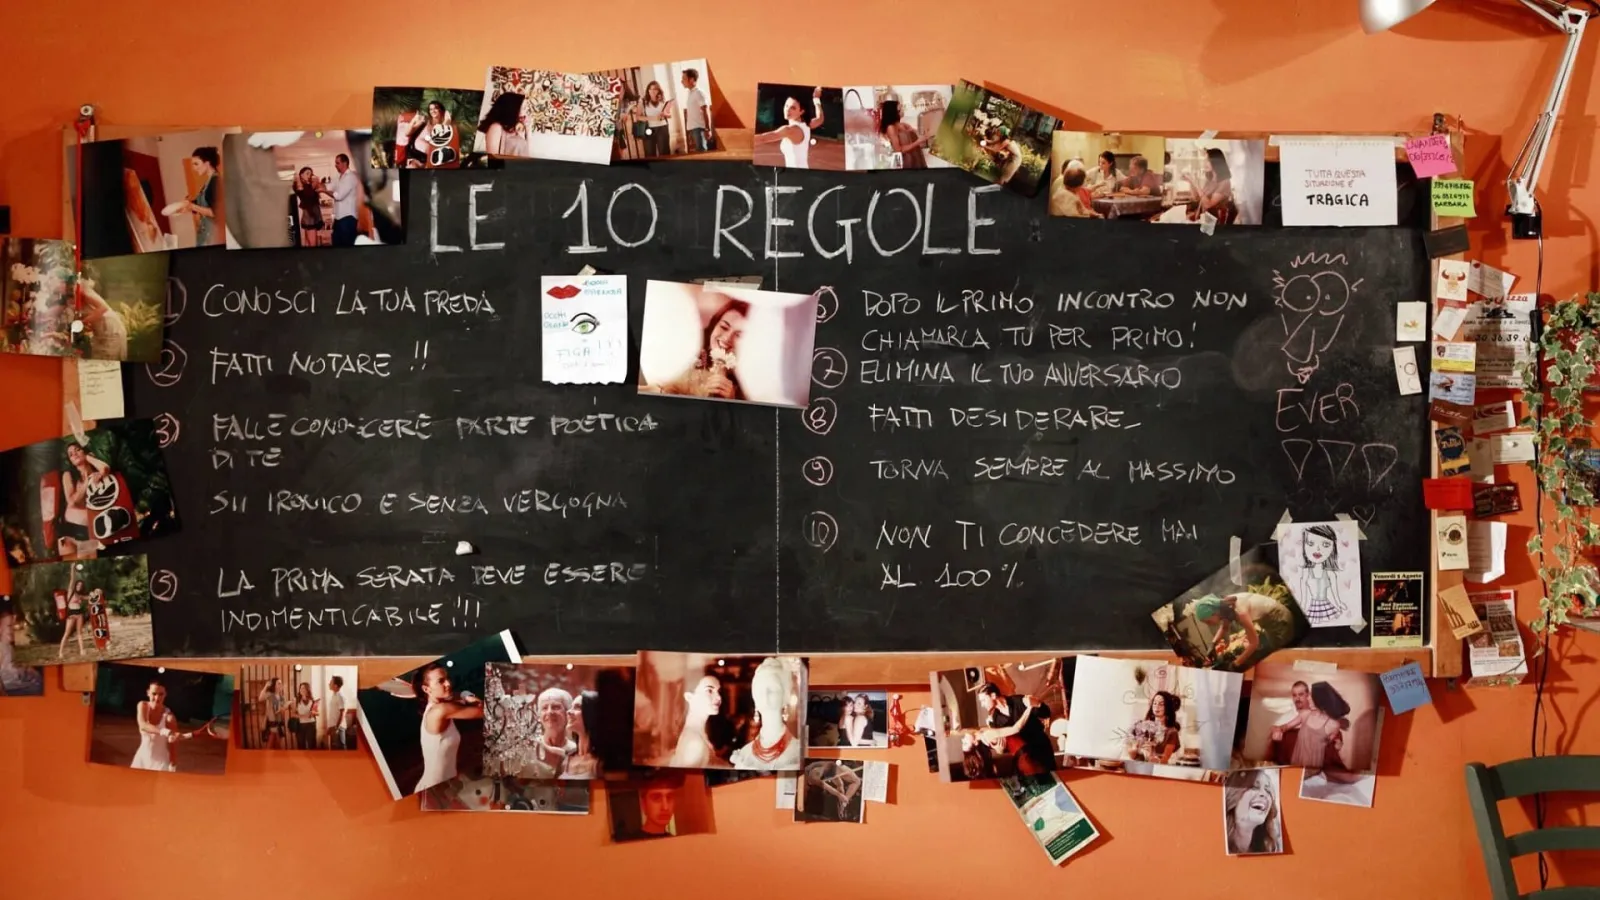 LE 10 REGOLE
1 CONOSCI LA TUA PREDA
2 FATTI NOTARE !!
3 FALLE CONOSCERE PARTE POETICA
DI TE
SII IRONICO E SENZA VERGOGNA
5 LA PRIMA SERATA DEVE ESSERE
INDIMENTICABILE!!!
6 DOPO IL PRIMO INCONTRO NON
CHIAMARLA TU PER PRIMO!
7 ELIMINA IL TUO AVVERSARIO
8 FATTI DESIDERARE
9 TORNA SEMPRE AL MASSIMO
10 NON TI CONCEDERE MAI
AL 100%
FIGA !!!
TUTTA QUESTA
SITUAZIONE È
TRAGICA
BARBARA
EVER
Venerdì 2 Agosto